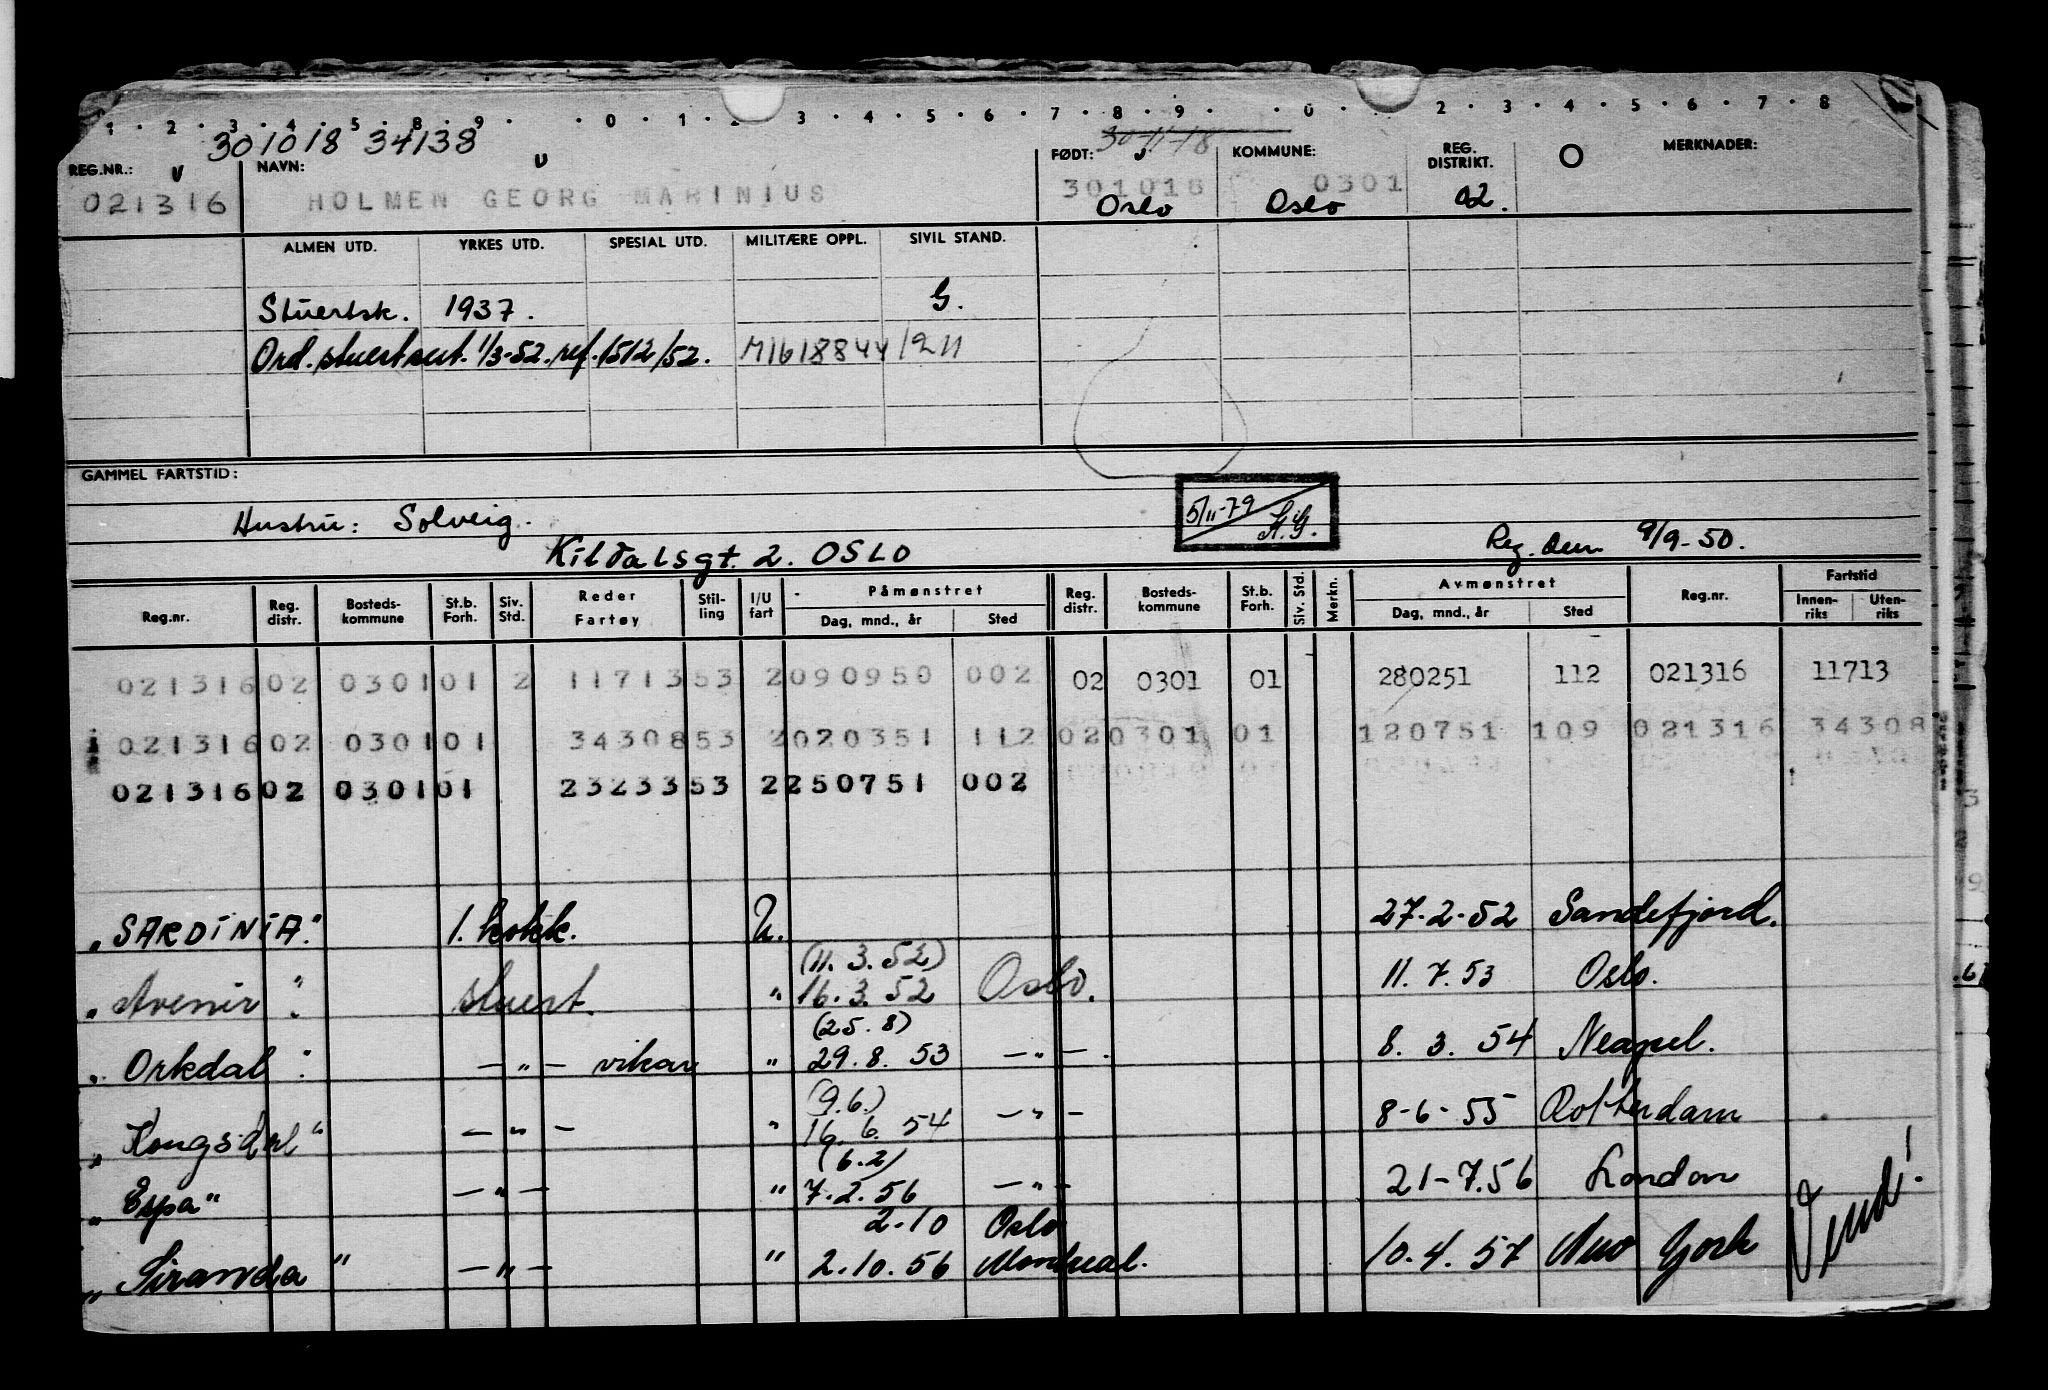 1 · 2 · 3 · 4 · 5 · 8 · 9 · · 0 · 1 · 2 · 3 · 4 · 5 · 6 · 7 · 8 · 9 · · 0 · 2 · 3 · 4 · 5 · 6 · 7 · 8
301018 34138 30-11-18
REG.NR.: v NAVN: v FØDT: v KOMMUNE: REG. DISTRIKT. O MERKNADER:
021316 HOLMEN GEORG MARINIUS 301018 0301
Oslo Oslo 02.
ALMEN UTD. YRKES UTD. SPESIAL UTD. MILITÆRE OPPL. SIVIL STAND.
Stuertsk. 1937. G.
Ord. stuertsert. 1/3-52. ref. 1512/52. M1618844/211
GAMMEL FARTSTID:
Hustru: Solveig. 5/11-79 Reg. den 9/9-50.
Kildalsgt. 2. OSLO
Reg.nr. Reg. distr. Bosteds-kommune St.b. Forh. Siv. Std. Reder Fartøy Stil-ling I/U fart Påmønstret Dag, mnd., år Sted Reg. distr. Bosteds-kommune St.b. Forh. Siv. Std. Merkn. Avmønstret Dag, mnd., år Sted Reg.nr. Fartstid Innen-riks Uten-riks
021316 02 0301 01 2 11713 53 2 090950 002 02 0301 01 280251 112 021316 11713
021316 02 0301 01 34308 53 2 020351 112 02 0301 01 120751 109 021316 34308
021316 02 0301 01 23233 53 2 250751 002
„SARDINIA." 1. kokk. U. 27-2-52 Sandefjord.
(11. 3. 52)
„Avenir" stuert. " 16. 3. 52 Oslo. 11. 7. 53 Oslo.
(25. 8)
„Orkdal" — " — vikar " 29. 8. 53 — " — . 8. 3. 54 Neapel.
(9.6.)
„Kongsdal" — " — " 16. 6. 54 — " — 8-6-55 Rotterdam
(6.2)
„Espa" — " — " 7. 2. 56 — " — 21-7.56 London
2-10 Oslo
„Siranda" — " — " 2. 10. 56 Montreal. 10. 4. 57 New York
Vend!